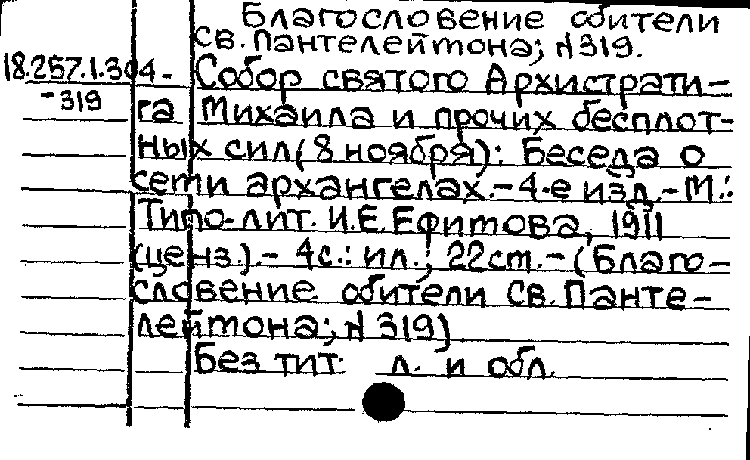 Благословение обители
св. Пантелеймона; N 319.
18.257.1.304- Собор святого Архистрати-
-319 га Михаила и прочих бесплот-
ных сил (8 ноября): Беседа о
сети архангелах. - 4-е изд. - М.:
Типо-лит. И.Е. Ефимова, 1911
(ценз.). - 4с.: ил.; 22 ст. - (Благо-
словение обители Св. Панте-
леймона; N 319)
Без тит. л. и обл.